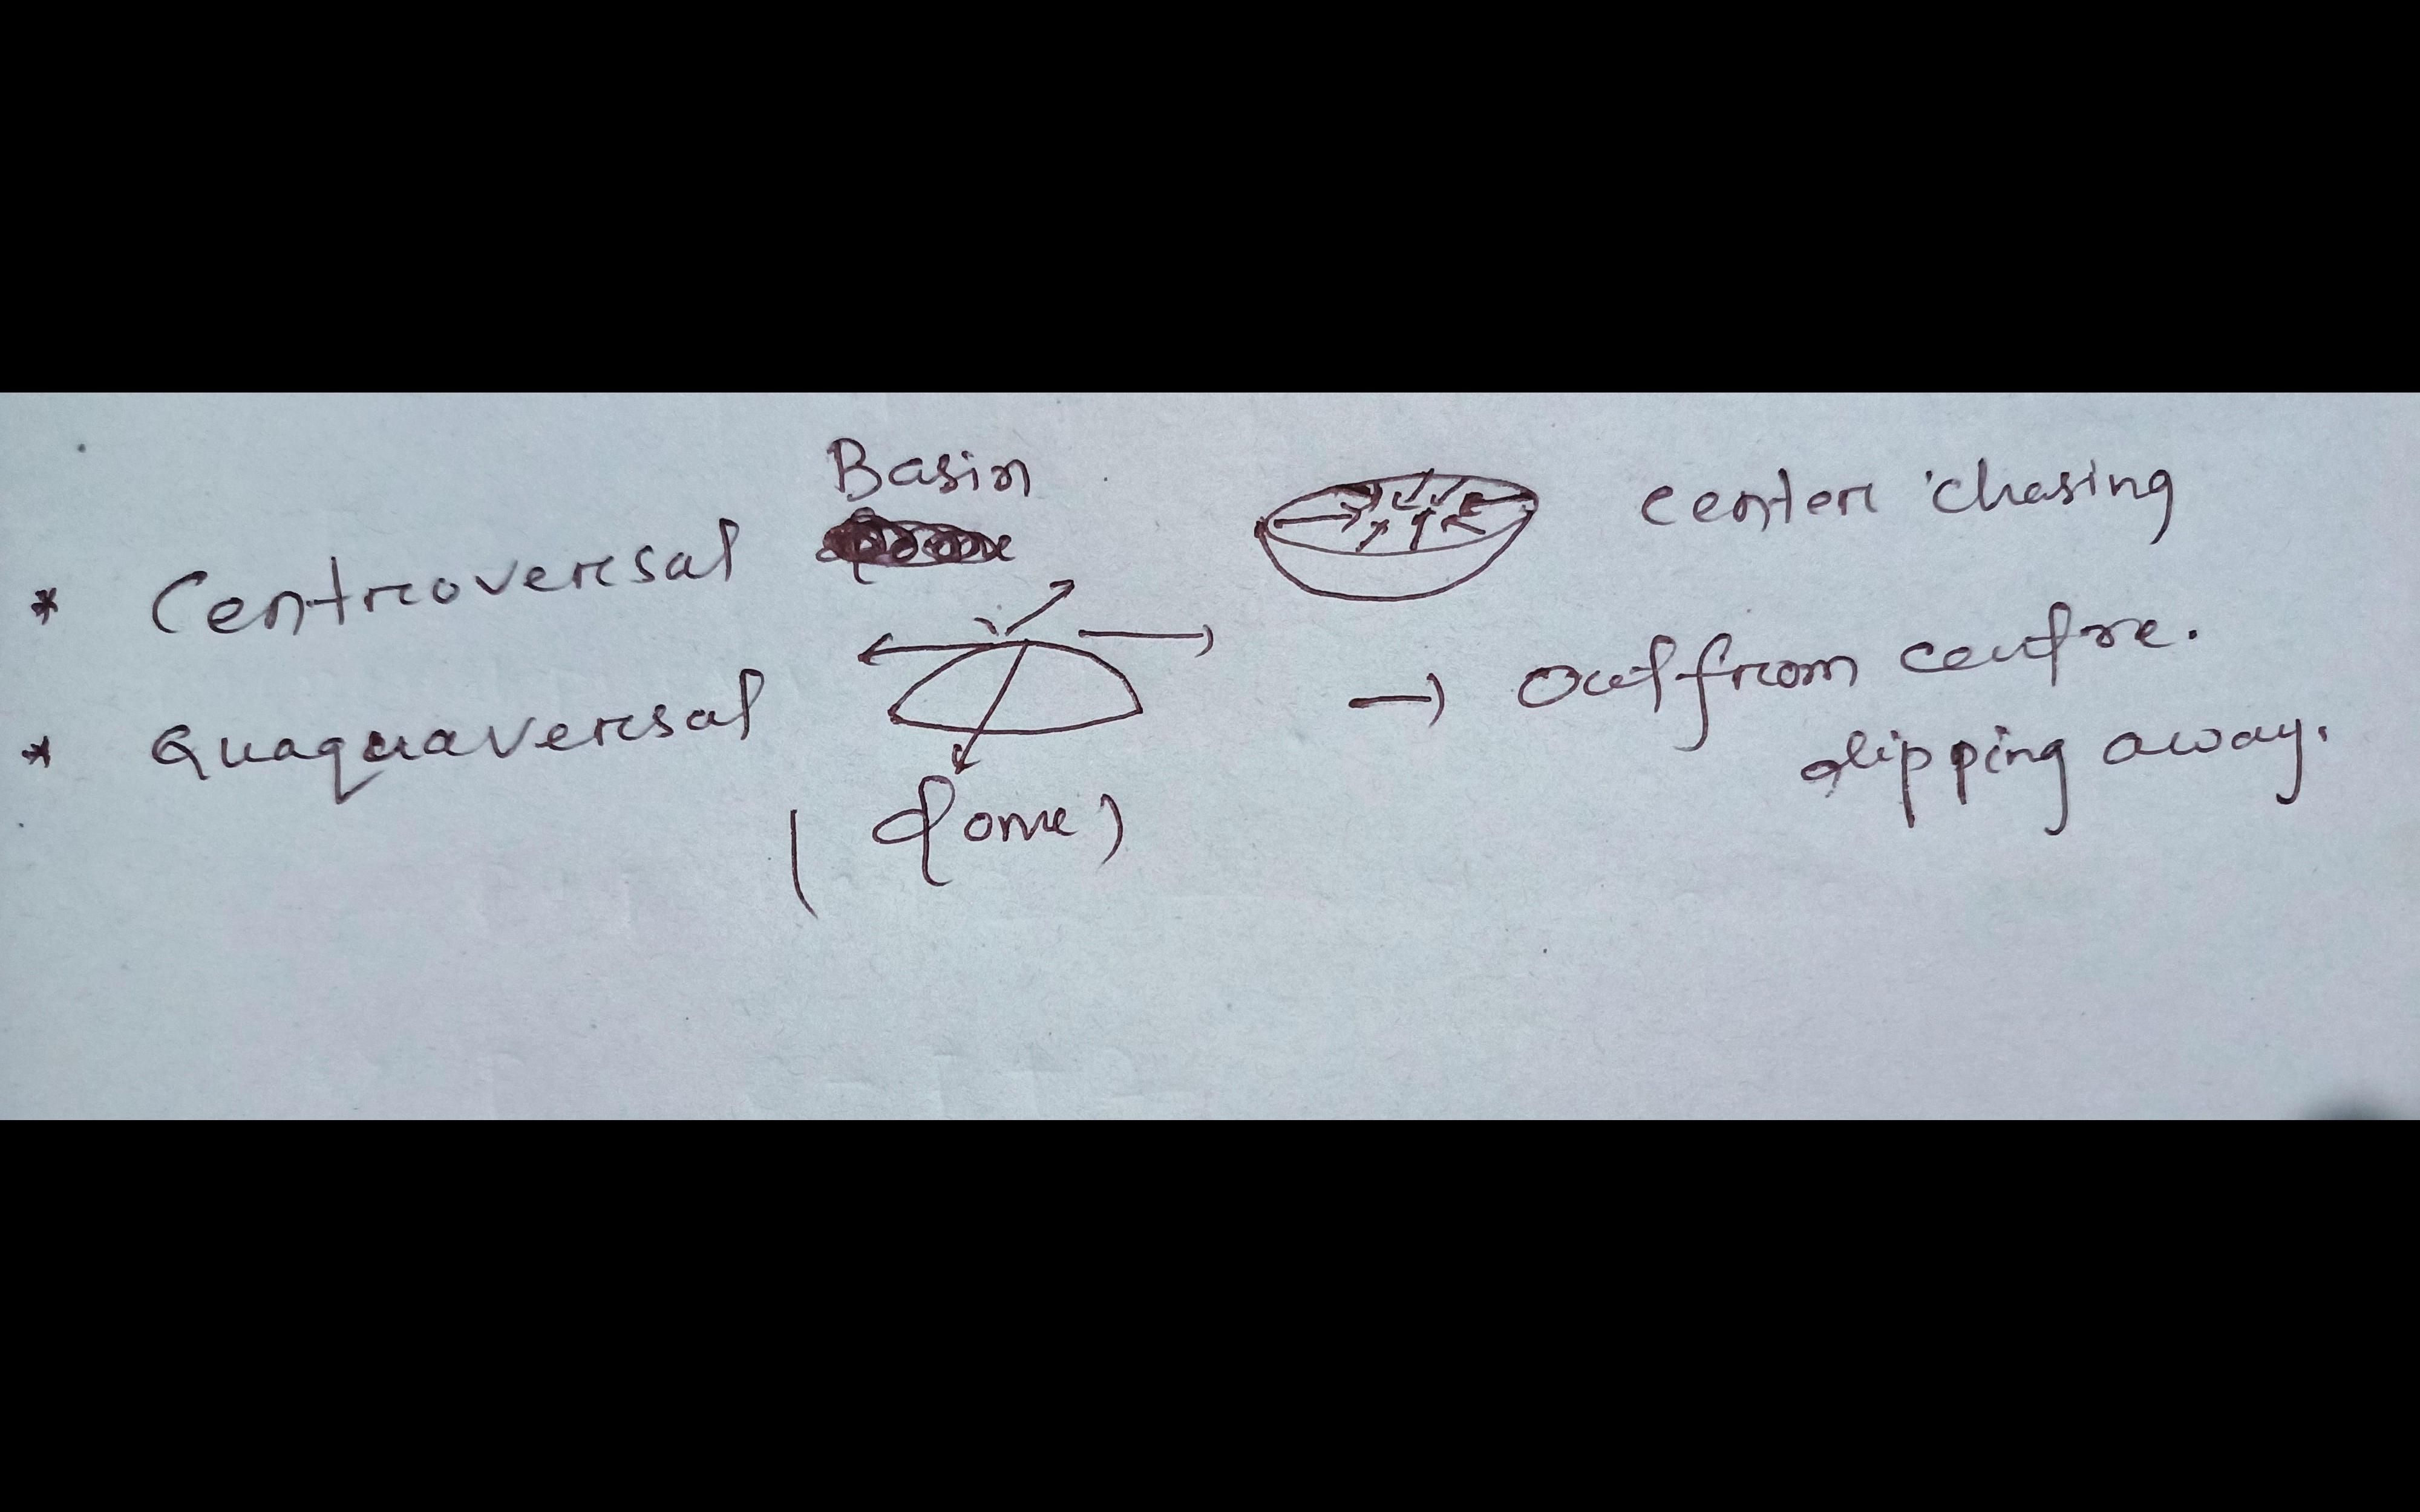 Basin
* Centroversal center chasing
* Quaquaversal → Out from centre.
dipping away.
(dome)